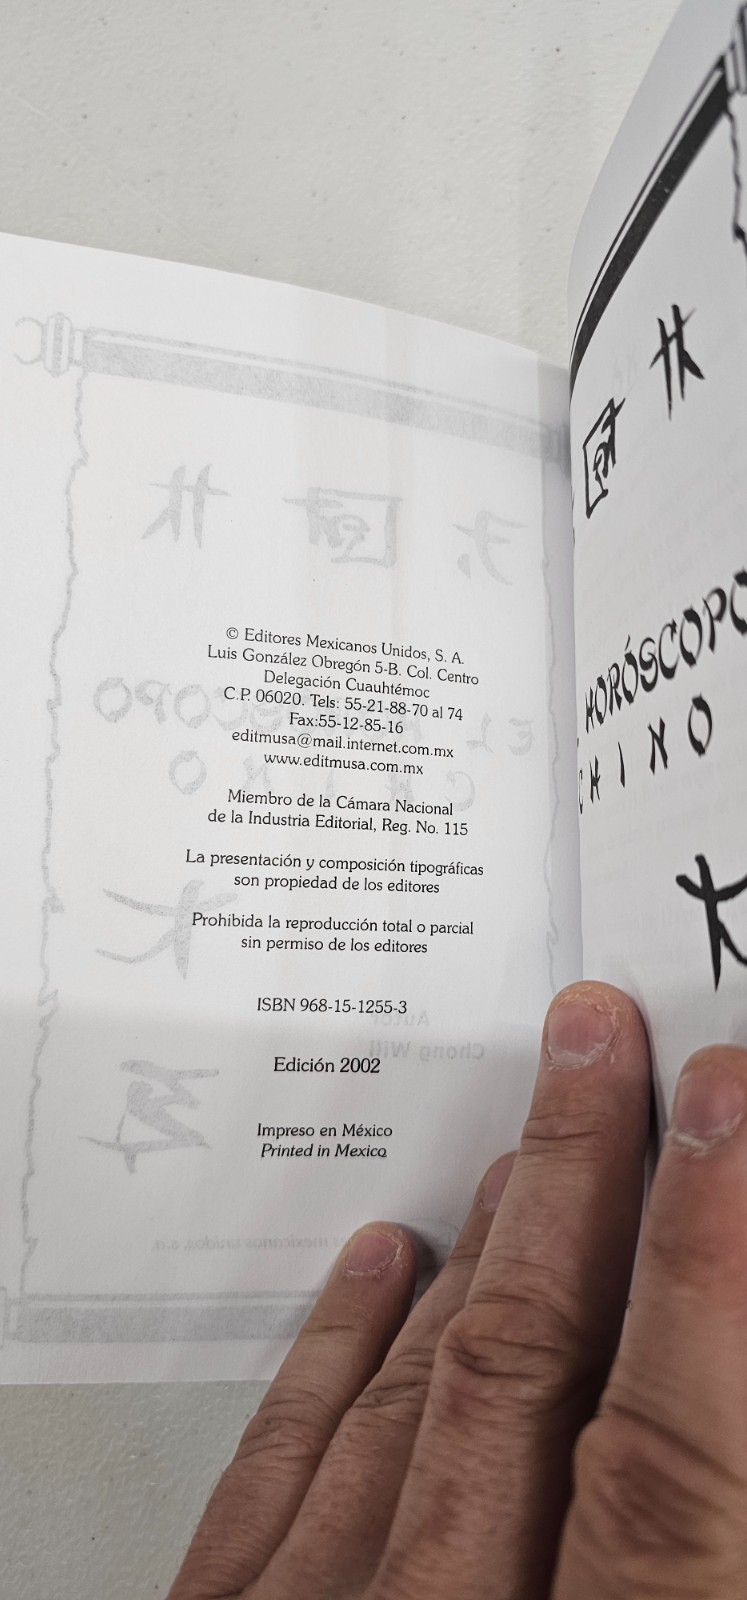 © Editores Mexicanos Unidos, S. A.
Luis González Obregón 5-B. Col. Centro
Delegación Cuauhtémoc
C.P. 06020. Tels: 55-21-88-70 al 74
Fax:55-12-85-16
editmusa@mail.internet.com.mx
www.editmusa.com.mx
Miembro de la Cámara Nacional
de la Industria Editorial, Reg. No. 115
La presentación y composición tipográficas
son propiedad de los editores
Prohibida la reproducción total o parcial
sin permiso de los editores
ISBN 968-15-1255-3
Edición 2002
Impreso en México
Printed in Mexico
HORÓSCOPO
CHINO